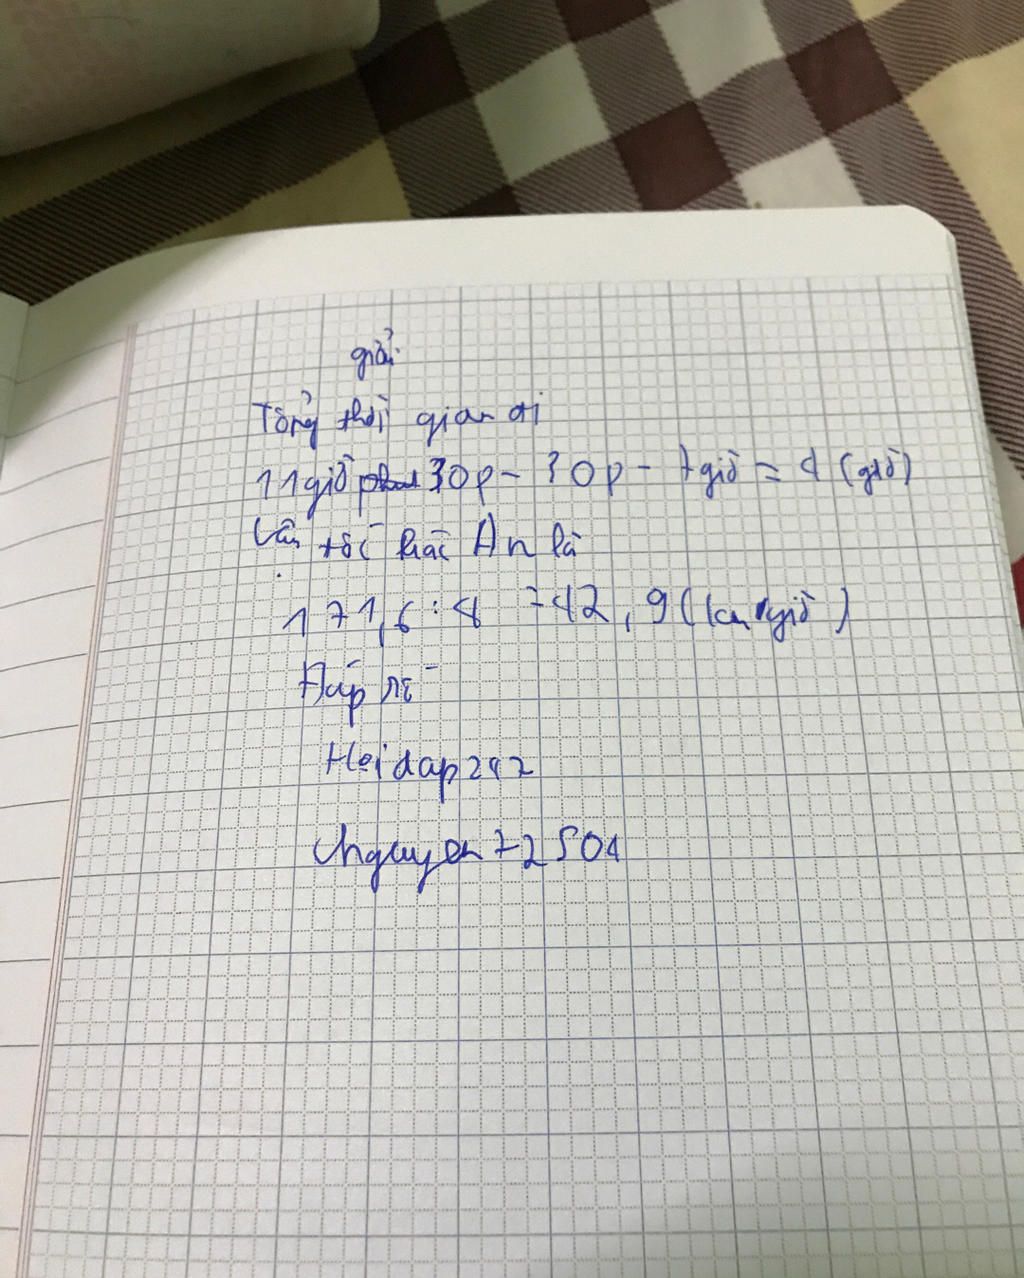 giải
Tổng thời gian đi
11giờ 30p - 30p - 7giờ = 4 (giờ)
Vận tốc bác An là
171,6 : 4 = 42,9 (km/giờ)
Đáp số
Hoidap247
nguyen72504